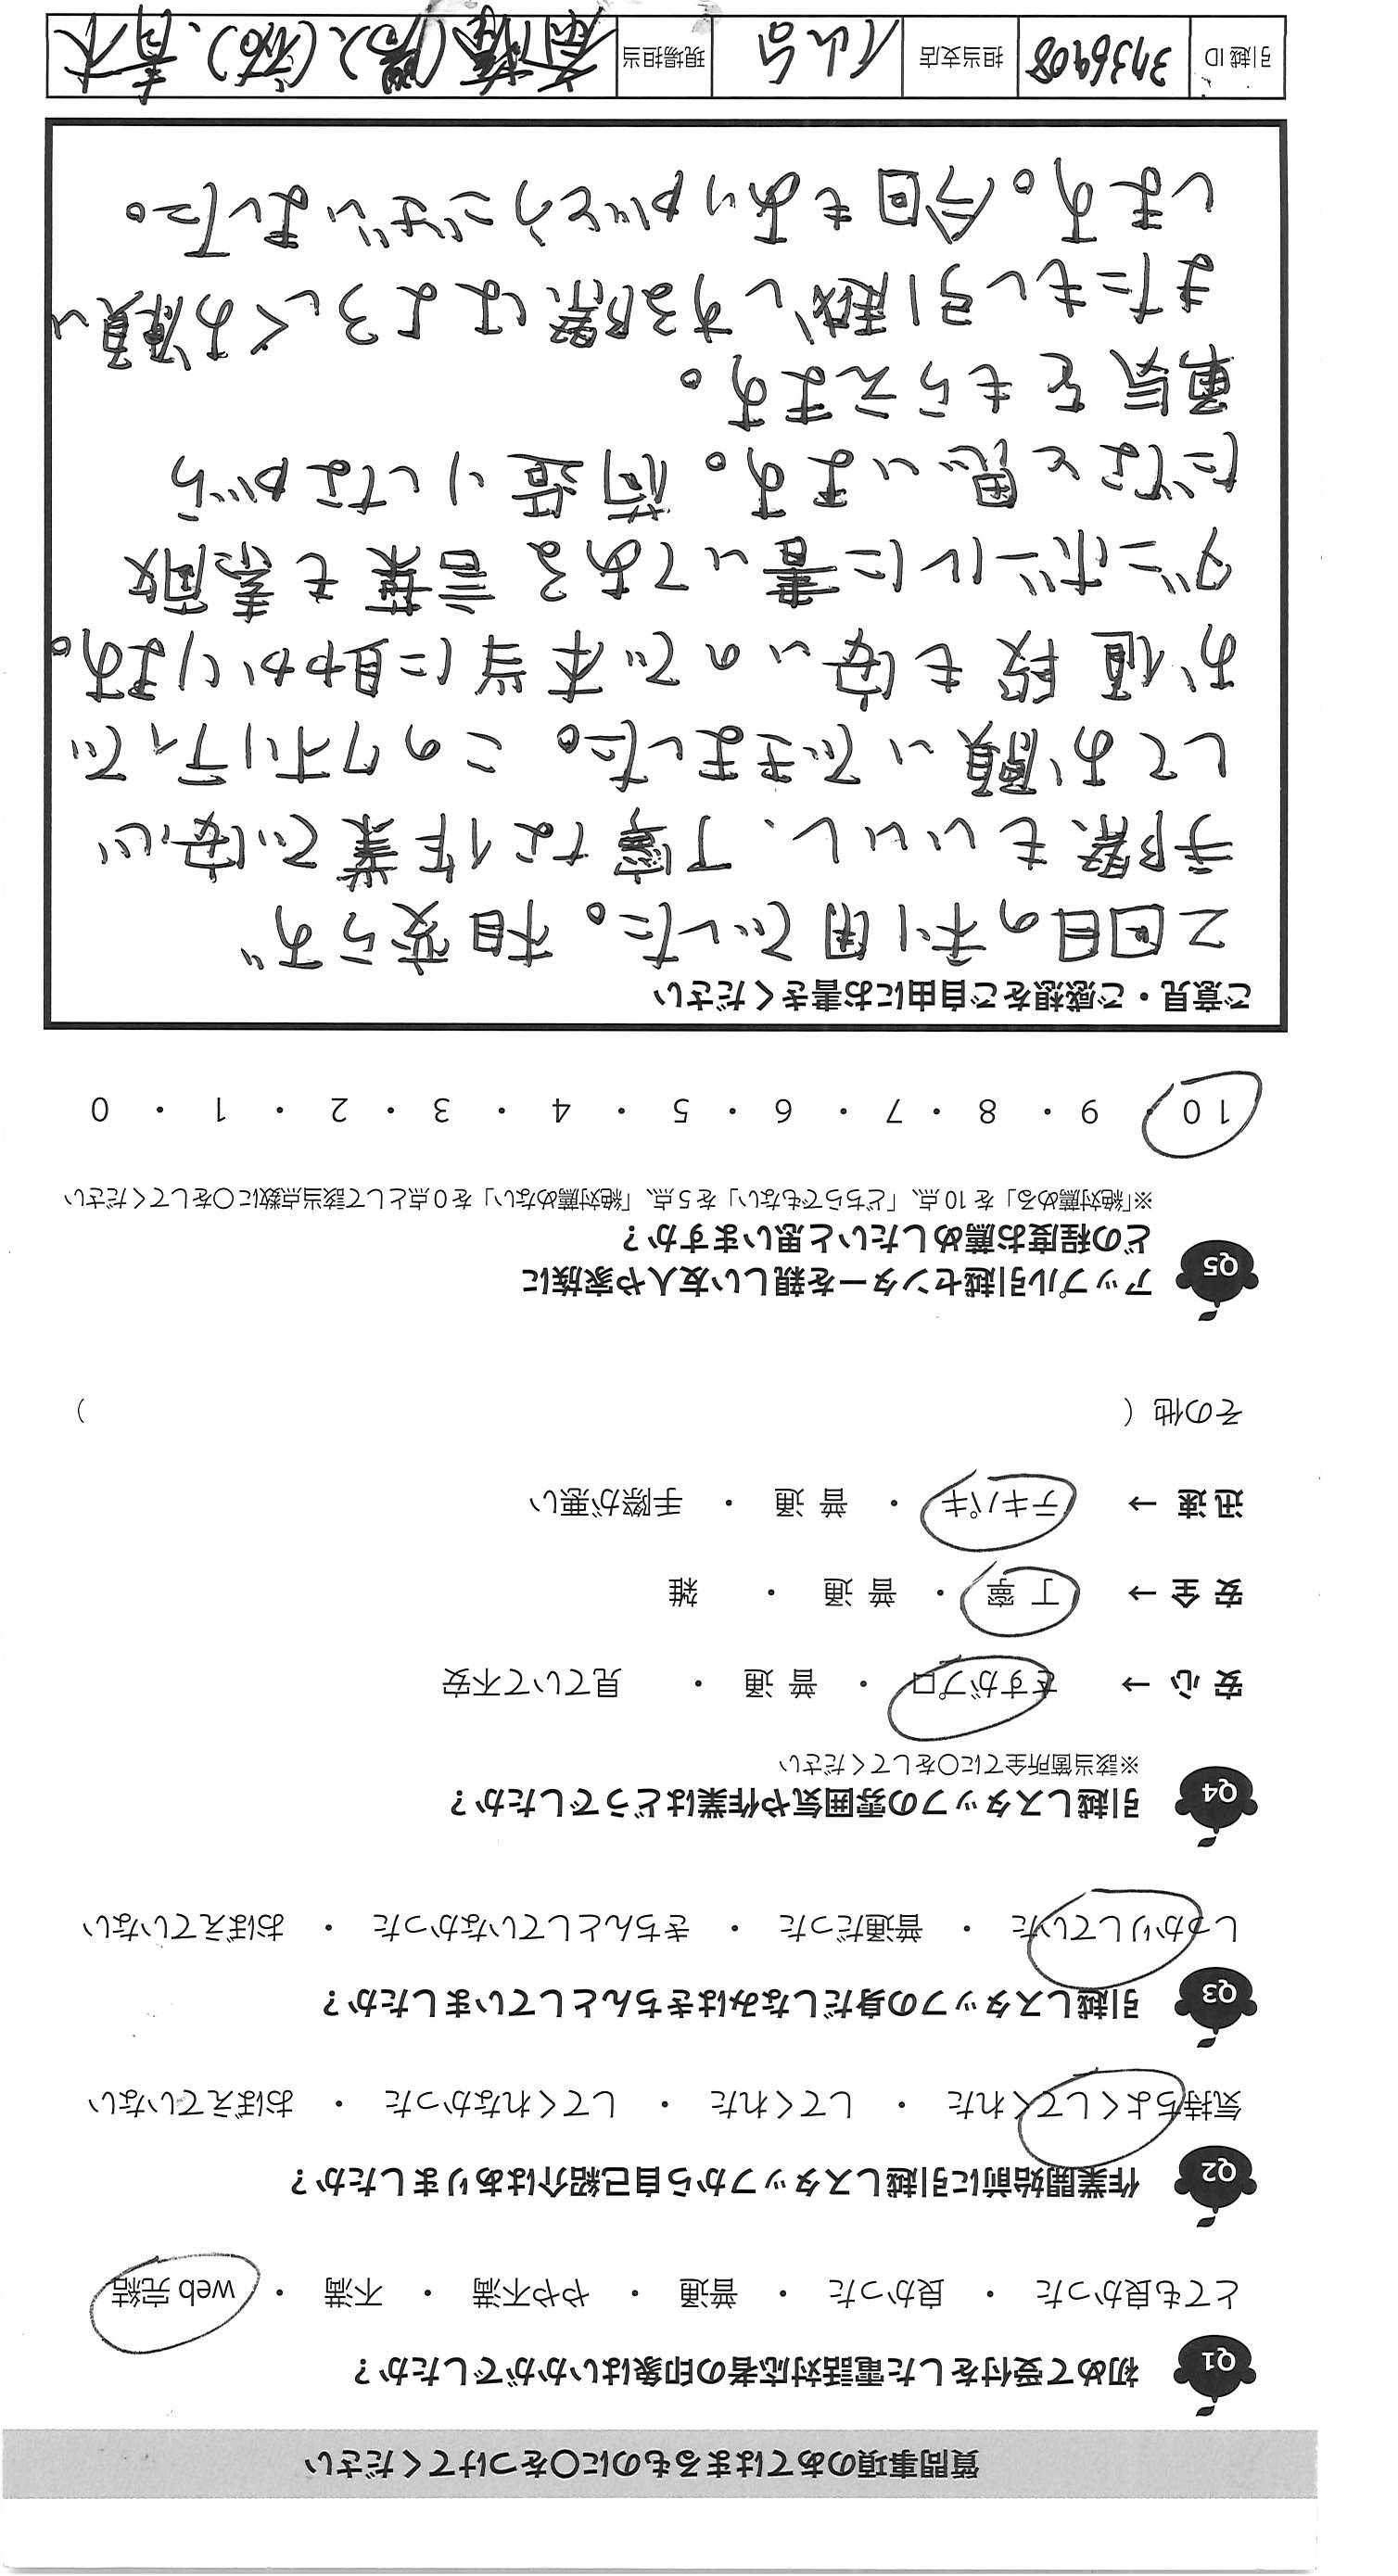 質問事項のあてはまるものに○をつけてください
Q1 初めて受付をした電話対応者の印象はいかがでしたか?
とても良かった ・ 良かった ・ 普通 ・ やや不満 ・ 不満 ・ web 完結
Q2 作業開始前に引越しスタッフから自己紹介はありましたか?
気持ちよくしてくれた ・ してくれた ・ してくれなかった ・ おぼえていない
Q3 引越しスタッフの身だしなみはきちんとしていましたか?
しっかりしていた ・ 普通だった ・ きちんとしていなかった ・ おぼえていない
Q4 引越しスタッフの雰囲気や作業はどうでしたか?
※該当箇所全てに○をしてください
安 心 → さすがプロ ・ 普 通 ・ 見ていて不安
安 全 → 丁 寧 ・ 普 通 ・ 雑
迅 速 → テキパキ ・ 普 通 ・ 手際が悪い
その他 ( )
Q5 アップル引越センターを親しい友人や家族に
どの程度お薦めしたいと思いますか?
※「絶対薦める」を 10 点、「どちらでもない」を 5 点、「絶対薦めない」を 0 点として該当点数に○をしてください
10 ・ 9 ・ 8 ・ 7 ・ 6 ・ 5 ・ 4 ・ 3 ・ 2 ・ 1 ・ 0
ご意見・ご感想をご自由にお書きください
2回目の利用でした。相変らず
手際もいいし、丁寧な作業で安心
してお願いできました。このクオリティで
お値段も安いので本当に助かります。
ダンボールに書いてある言葉も素敵
だなと思います。荷造りしながら
勇気をもらえます。
またもし引越しする際はよろしくお願い
します。今回もありがとうございました。
引越 ID 3736908 担当支店 仙台 現場担当 斎藤(陽)、(祐)、青木